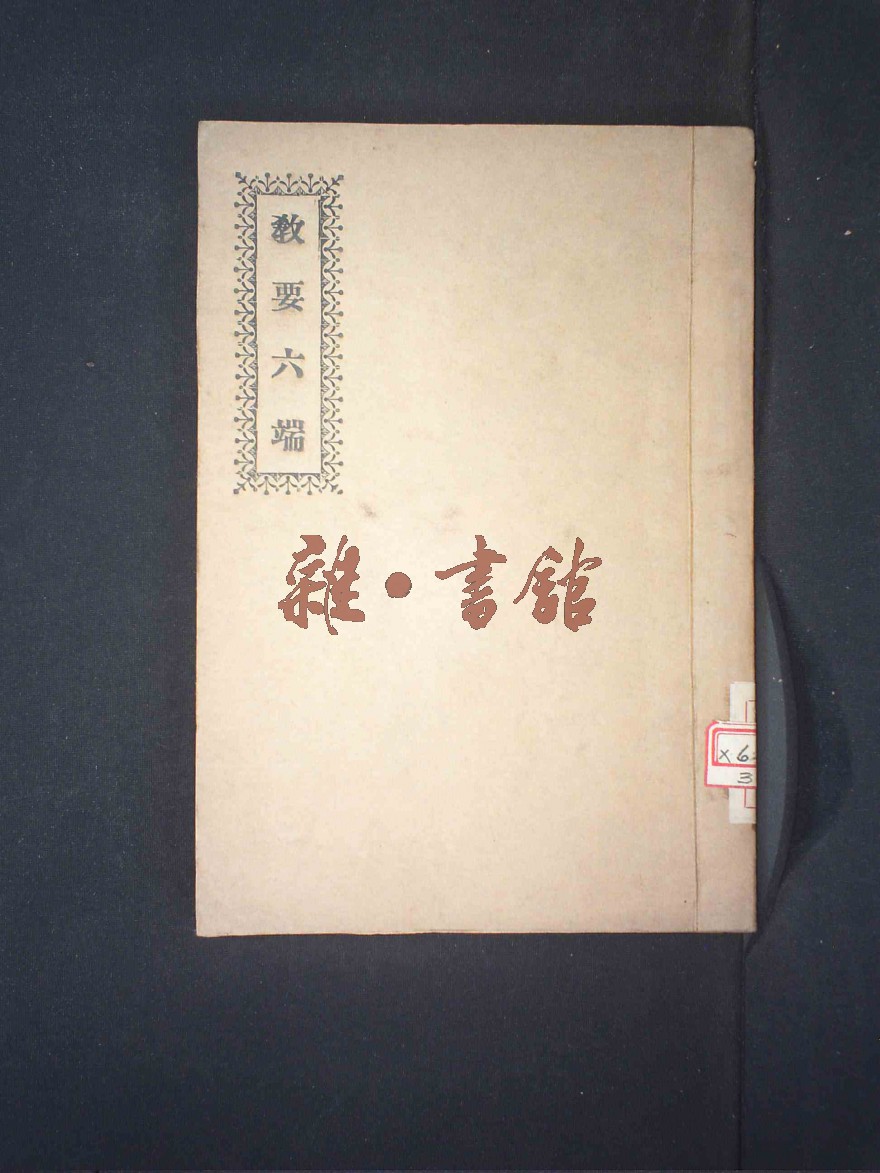 教要六端
雜·書館
X6
3